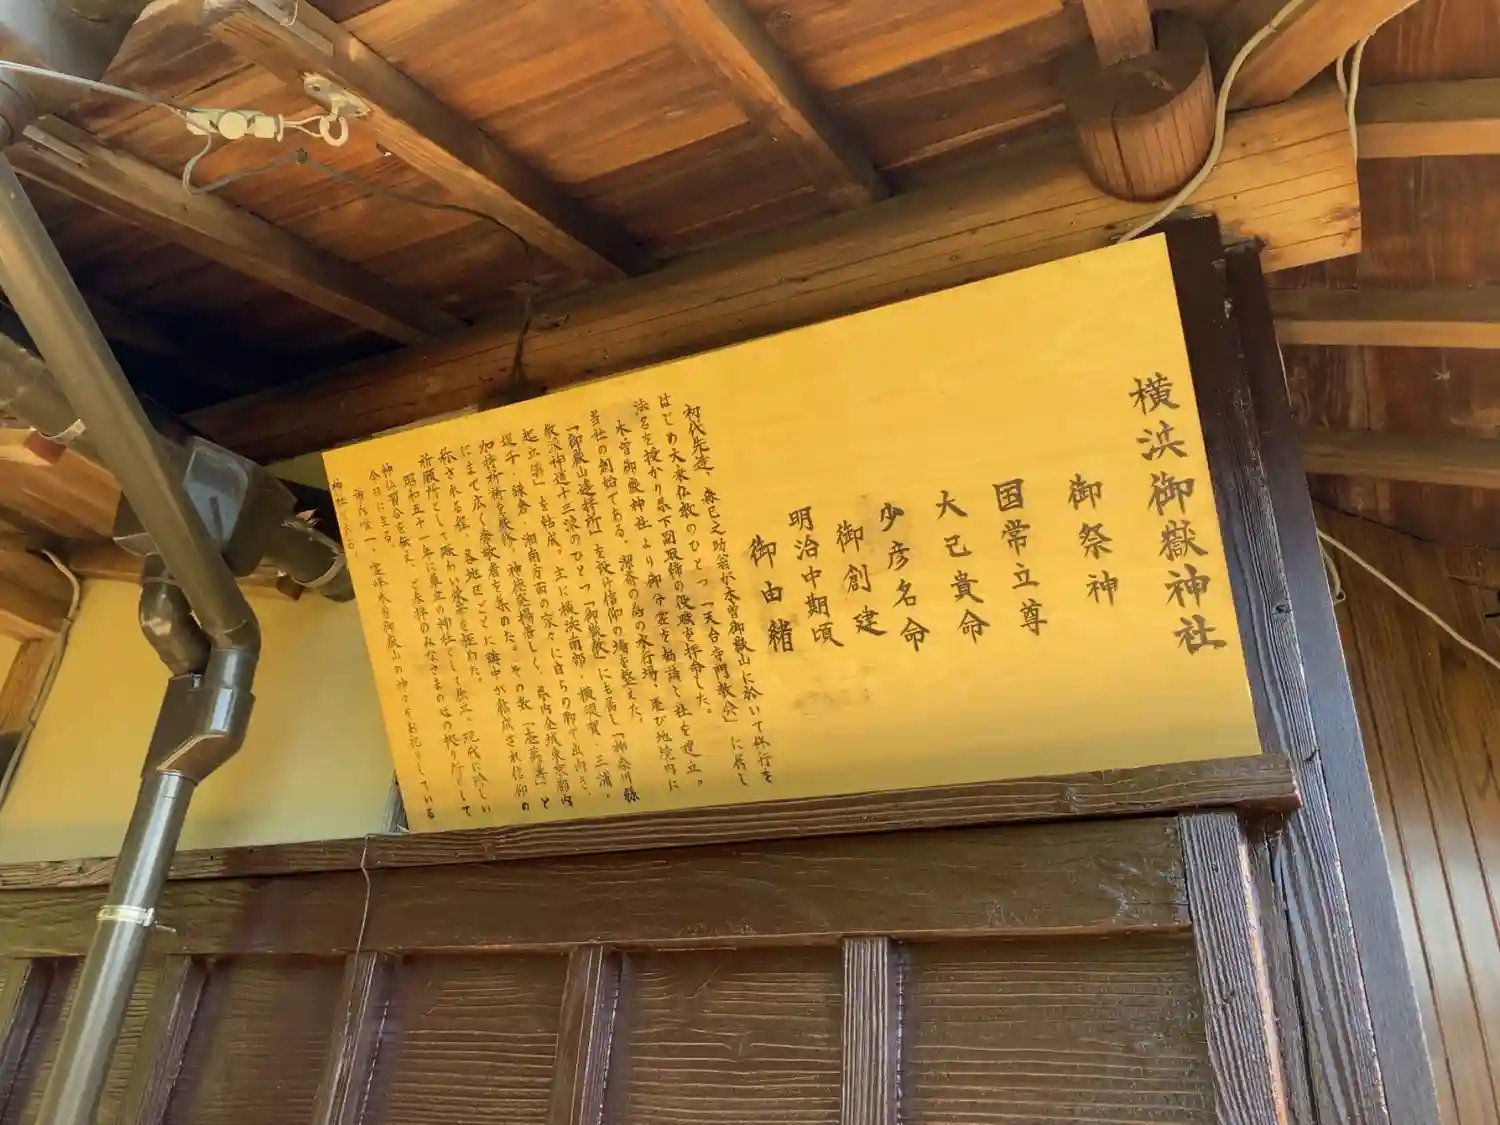 横浜御嶽神社
御祭神
国常立尊
大己貴命
少彦名命
御創建
明治中期頃
御由緒
初代先達、森巳之助翁が木曽御嶽山に於いて修行を
はじめ天来仏教のひとつ「天台寺門教会」に属し
法名を授かり県下図取締の役職を拝命した。
木曽御嶽神社より御分霊を勧請し社を建立。
当社の創始である。潔斎の為の水行場、並び地境内に
「御嶽山遥拝所」を設け信仰の場を整えた。
教派神道十三派のひとつ「御嶽教」にも属し「神奈川縣
起立講」を結成。主に横浜南部・横須賀・三浦・
逗子・鎌倉・湘南方面の家々に自らの脚で出向き、
加持祈祷を厳修。神徳発揚著しく、県内全域東京都内
にまで広く崇敬者を集めた。その数「壱萬講」と
称される程。各地区ごとに講中が結成され信仰の
祈願所として賑わい栄華を極めた。
昭和五十一年に単立の神社として独立。現代に於いい
神仏習合を伝え、ご参拝のみなさまの心の拠り所として
今日に至る。
市内唯一、霊峰木曽御嶽山の神々をお祀りしている
神社である。